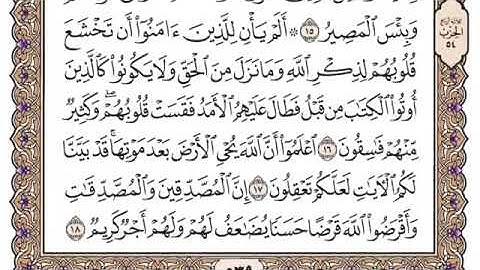 وَبِئْسَ ٱلْمَصِيرُ ١٥ ۞ أَلَمْ يَأْنِ لِلَّذِينَ ءَامَنُوٓا۟ أَن تَخْشَعَ
قُلُوبُهُمْ لِذِكْرِ ٱللَّهِ وَمَا نَزَلَ مِنَ ٱلْحَقِّ وَلَا يَكُونُوا۟ كَٱلَّذِينَ
أُوتُوا۟ ٱلْكِتَٰبَ مِن قَبْلُ فَطَالَ عَلَيْهِمُ ٱلْأَمَدُ فَقَسَتْ قُلُوبُهُمْ ۖ وَكَثِيرٌ
مِّنْهُمْ فَٰسِقُونَ ١٦ ٱعْلَمُوٓا۟ أَنَّ ٱللَّهَ يُحْىِ ٱلْأَرْضَ بَعْدَ مَوْتِهَا ۚ قَدْ بَيَّنَّا
لَكُمُ ٱلْءَايَٰتِ لَعَلَّكُمْ تَعْقِلُونَ ١٧ إِنَّ ٱلْمُصَّدِّقِينَ وَٱلْمُصَّدِّقَٰتِ
وَأَقْرَضُوا۟ ٱللَّهَ قَرْضًا حَسَنًا يُضَٰعَفُ لَهُمْ وَلَهُمْ أَجْرٌ كَرِيمٌ ١٨
الحزب
٥٤